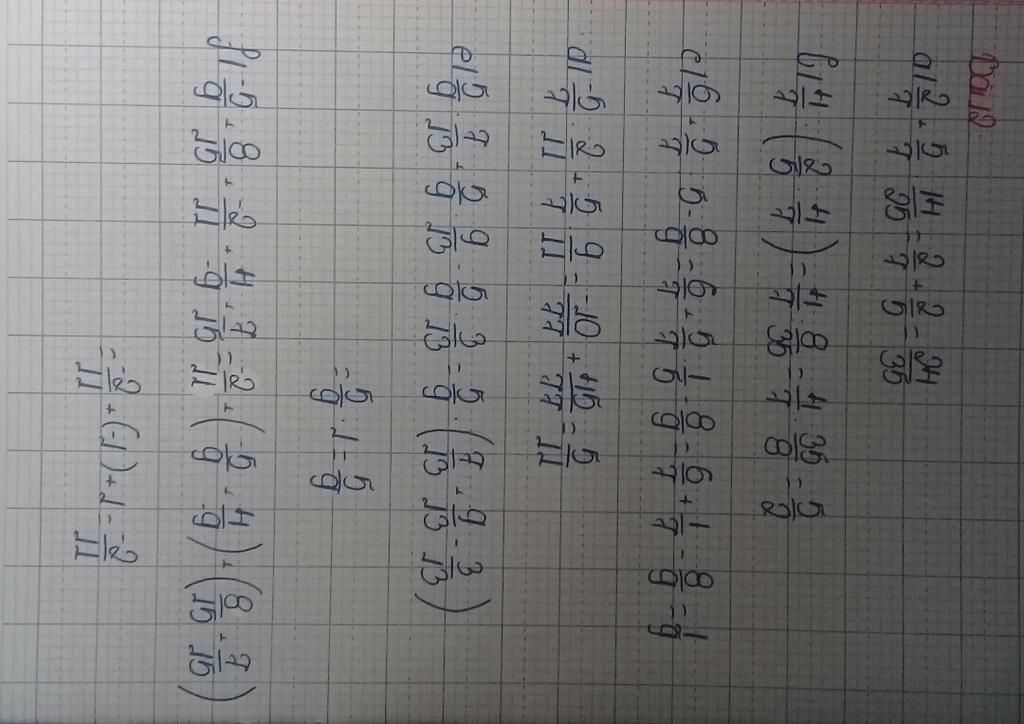 Bài 12
a) 2/7 + 5/7 · 14/25 = 2/7 + 2/5 = 24/35
b) 4/7 : (2/5 · 4/7) = 4/7 : 8/35 = 4/7 · 35/8 = 5/2
c) 6/7 + 5/7 : 5 - 8/9 = 6/7 + 5/7 · 1/5 - 8/9 = 6/7 + 1/7 - 8/9 = 1/9
d) -5/7 · 2/11 + 5/7 · 9/11 = -10/77 + 45/77 = 5/11
e) 5/9 · 7/13 + 5/9 · 9/13 - 5/9 · 3/13 = 5/9 · (7/13 + 9/13 - 3/13)
= 5/9 · 1 = 5/9
f) -5/9 + 8/15 + -2/11 + 4/-9 + 7/15 = -2/11 + (-5/9 + 4/-9) + (8/15 + 7/15)
= -2/11 + (-1) + 1 = -2/11